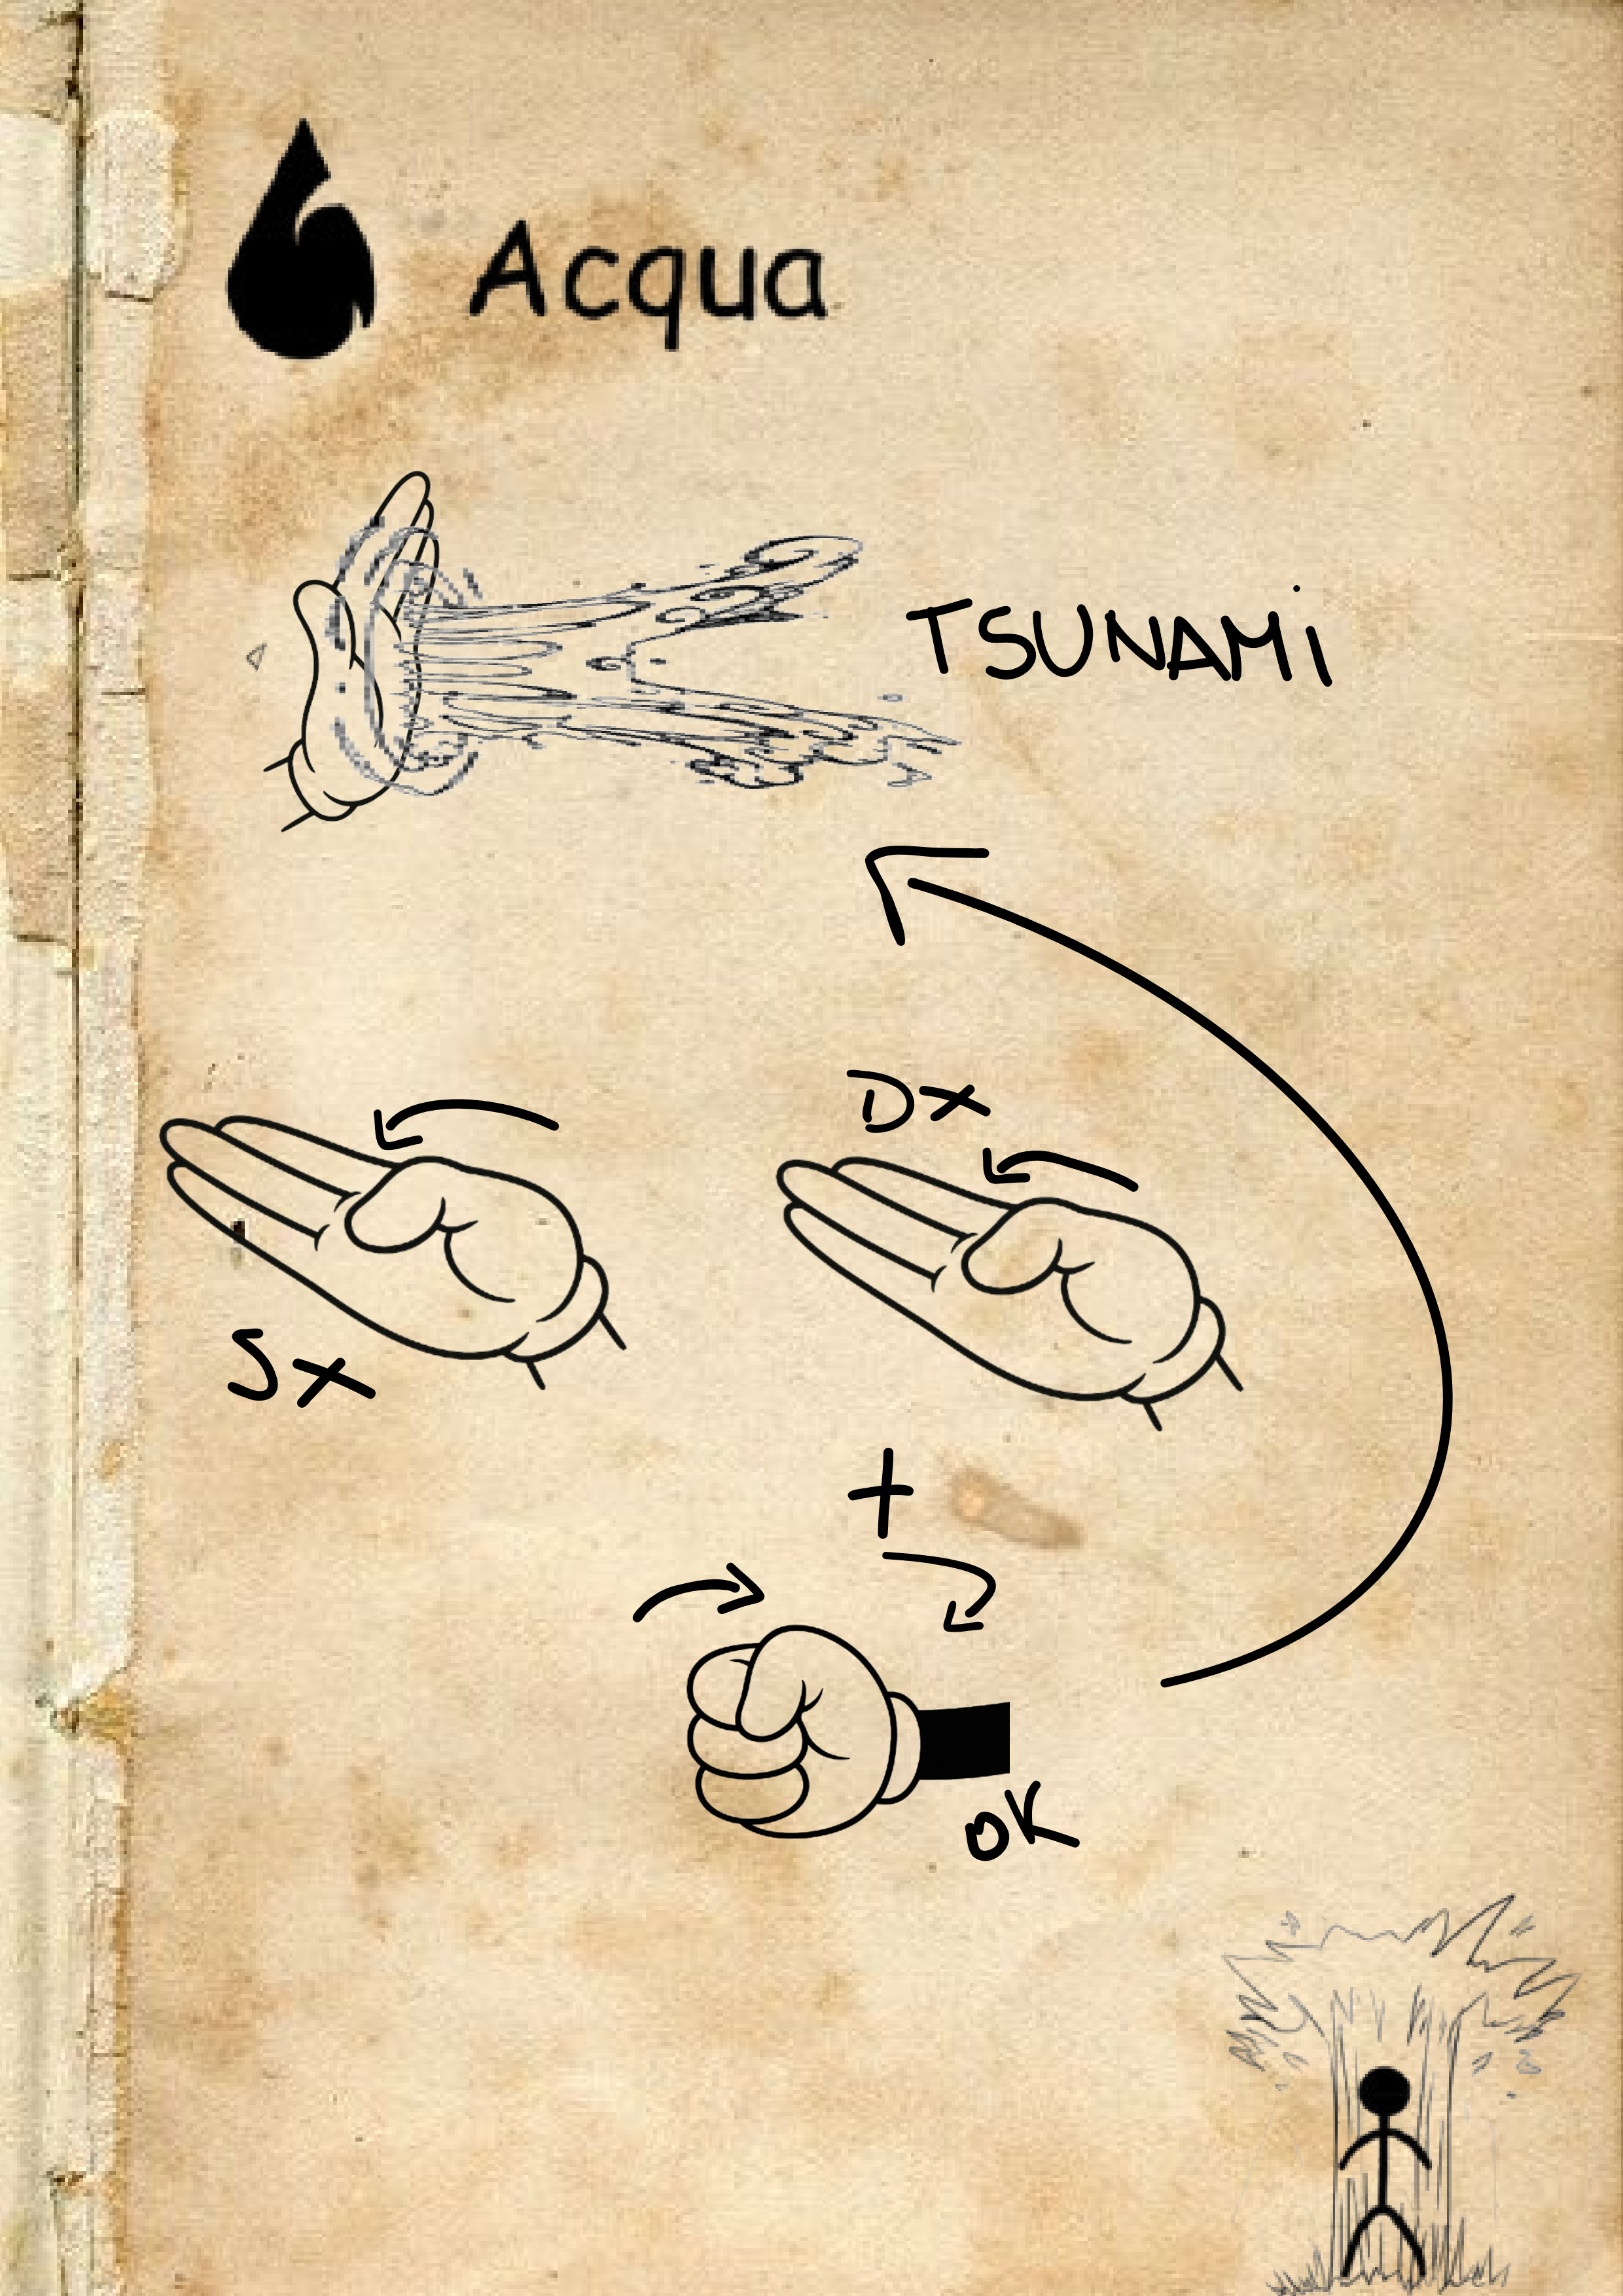 Acqua
TSUNAMi
Dx
Sx
+
OK